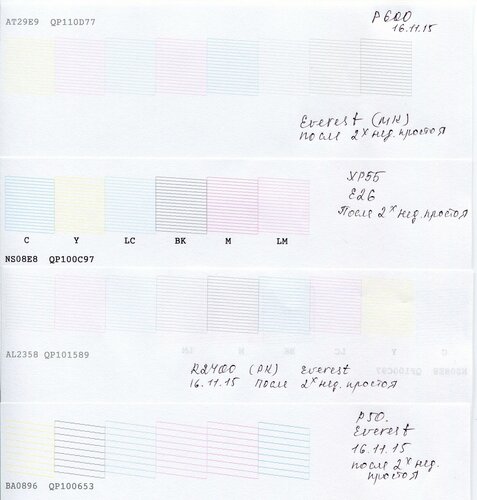 AT29E9 QP110D77
P600
16.11.15
Everest (MK)
после 2х нед. простоя
XP55
E26
После 2х нед. простоя
C Y LC BK M LM
NS08E8 QP100C97
AL2358 QP101589
R2400 (PK) Everest
16.11.15 после 2х нед. простоя
P50.
Everest
16.11.15
после 2х нед.
простоя
BA0896 QP100653